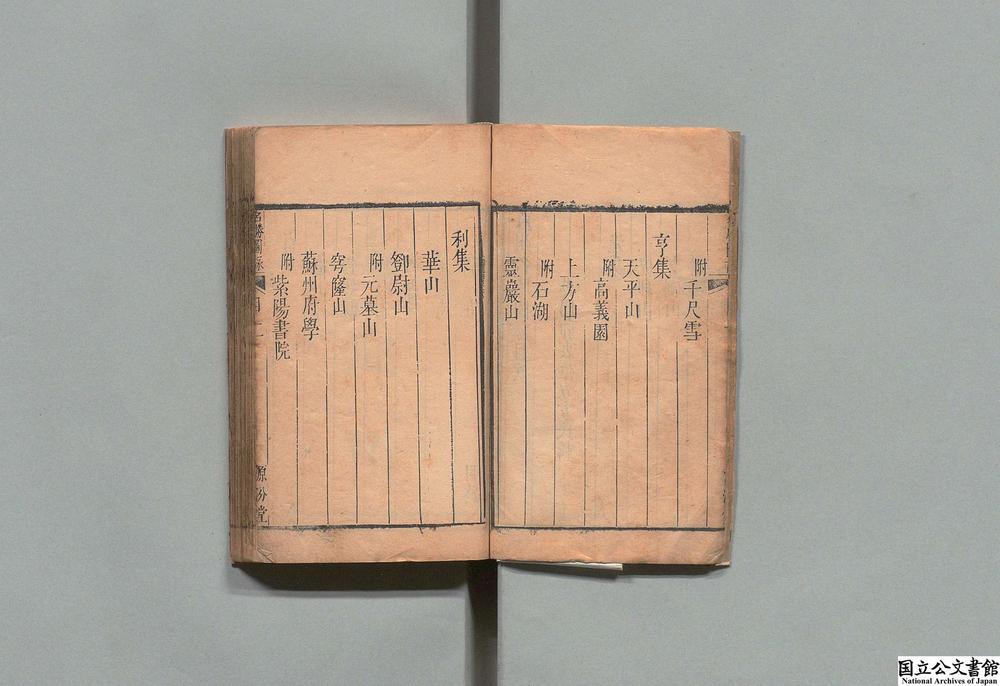 附千尺雪
亨集
天平山
附高義園
上方山
附石湖
靈巖山
利集
華山
鄧尉山
附元墓山
穹窿山
蘇州府學
附紫陽書院
名勝圖錄
目
二
国立公文書館
National Archives of Japan